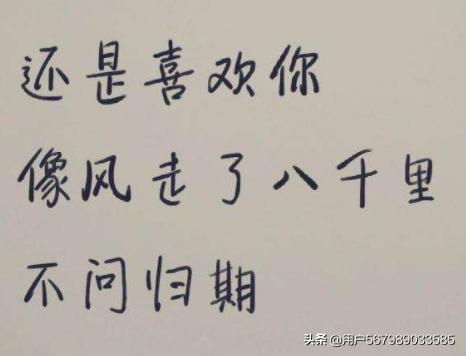 还是喜欢你
像风走了八千里
不问归期
头条 @用户567989033585